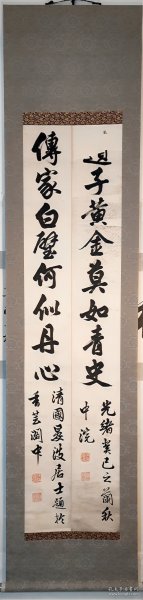 過子黃金莫如青史
光緒癸巳之菊秋
中浣
傳家白璧何似丹心
清國晏波居士題於
香芸閣中